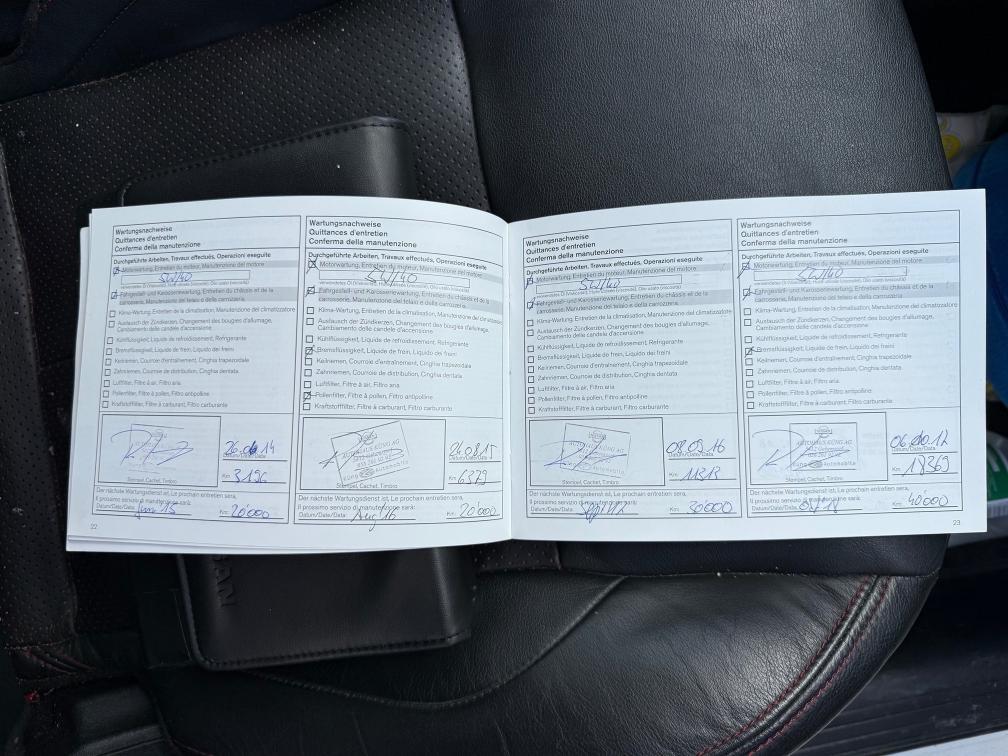 Wartungsnachweise
Quittances d'entretien
Conferma della manutenzione
Durchgeführte Arbeiten, Travaux effectués, Operazioni eseguite
Motorwartung, Entretien du moteur, Manutenzione del motore
5W/40
Fahrgestell- und Karosseriewartung, Entretien du châssis et de la
carrosserie, Manutenzione del telaio e della carrozzeria
Klima-Wartung, Entretien de la climatisation, Manutenzione del climatizzatore
Austausch der Zündkerzen, Changement des bougies d'allumage,
Cambiamento delle candele d'accensione
Kühlflüssigkeit, Liquide de refroidissement, Refrigerante
Bremsflüssigkeit, Liquide de frein, Liquido dei freini
Keilriemen, Courroie d'entraînement, Cinghia trapezoidale
Zahnriemen, Courroie de distribution, Cinghia dentata
Luftfilter, Filtre à air, Filtro aria
Pollenfilter, Filtre à pollen, Filtro antipolline
Kraftstofffilter, Filtre à carburant, Filtro carburante
14
Datum/Date/Data
Km: 3196
Stempel, Cachet, Timbro
Der nächste Wartungsdienst ist, Le prochain entretien sera,
Il prossimo servizio di manutenzione sarà:
Datum/Date/Data: Juni 15 Km: 20'000
22
Wartungsnachweise
Quittances d'entretien
Conferma della manutenzione
Durchgeführte Arbeiten, Travaux effectués, Operazioni eseguite
Motorwartung, Entretien du moteur, Manutenzione del motore
5W/40
Fahrgestell- und Karosseriewartung, Entretien du châssis et de la
carrosserie, Manutenzione del telaio e della carrozzeria
Klima-Wartung, Entretien de la climatisation, Manutenzione del climatizzatore
Austausch der Zündkerzen, Changement des bougies d'allumage,
Cambiamento delle candele d'accensione
Kühlflüssigkeit, Liquide de refroidissement, Refrigerante
Bremsflüssigkeit, Liquide de frein, Liquido dei freini
Keilriemen, Courroie d'entraînement, Cinghia trapezoidale
Zahnriemen, Courroie de distribution, Cinghia dentata
Luftfilter, Filtre à air, Filtro aria
Pollenfilter, Filtre à pollen, Filtro antipolline
Kraftstofffilter, Filtre à carburant, Filtro carburante
AUTOHAUS KÜNG AG
Küng Automobile
24.08.15
Datum/Date/Data
Km: 6379
Stempel, Cachet, Timbro
Der nächste Wartungsdienst ist, Le prochain entretien sera,
Il prossimo servizio di manutenzione sarà:
Datum/Date/Data: Aug 16 Km: 20'000
Wartungsnachweise
Quittances d'entretien
Conferma della manutenzione
Durchgeführte Arbeiten, Travaux effectués, Operazioni eseguite
Motorwartung, Entretien du moteur, Manutenzione del motore
5W/40
Fahrgestell- und Karosseriewartung, Entretien du châssis et de la
carrosserie, Manutenzione del telaio e della carrozzeria
Klima-Wartung, Entretien de la climatisation, Manutenzione del climatizzatore
Austausch der Zündkerzen, Changement des bougies d'allumage,
Cambiamento delle candele d'accensione
Kühlflüssigkeit, Liquide de refroidissement, Refrigerante
Bremsflüssigkeit, Liquide de frein, Liquido dei freini
Keilriemen, Courroie d'entraînement, Cinghia trapezoidale
Zahnriemen, Courroie de distribution, Cinghia dentata
Luftfilter, Filtre à air, Filtro aria
Pollenfilter, Filtre à pollen, Filtro antipolline
Kraftstofffilter, Filtre à carburant, Filtro carburante
AUTOHAUS KÜNG AG
Küng Automobile
08.09.16
Datum/Date/Data
Km: 11313
Stempel, Cachet, Timbro
Der nächste Wartungsdienst ist, Le prochain entretien sera,
Il prossimo servizio di manutenzione sarà:
Datum/Date/Data: Km: 30'000
Wartungsnachweise
Quittances d'entretien
Conferma della manutenzione
Durchgeführte Arbeiten, Travaux effectués, Operazioni eseguite
Motorwartung, Entretien du moteur, Manutenzione del motore
5W/40
Fahrgestell- und Karosseriewartung, Entretien du châssis et de la
carrosserie, Manutenzione del telaio e della carrozzeria
Klima-Wartung, Entretien de la climatisation, Manutenzione del climatizzatore
Austausch der Zündkerzen, Changement des bougies d'allumage,
Cambiamento delle candele d'accensione
Kühlflüssigkeit, Liquide de refroidissement, Refrigerante
Bremsflüssigkeit, Liquide de frein, Liquido dei freini
Keilriemen, Courroie d'entraînement, Cinghia trapezoidale
Zahnriemen, Courroie de distribution, Cinghia dentata
Luftfilter, Filtre à air, Filtro aria
Pollenfilter, Filtre à pollen, Filtro antipolline
Kraftstofffilter, Filtre à carburant, Filtro carburante
AUTOHAUS KÜNG AG
Küng Automobile
06.10.17
Datum/Date/Data
Km: 18369
Stempel, Cachet, Timbro
Der nächste Wartungsdienst ist, Le prochain entretien sera,
Il prossimo servizio di manutenzione sarà:
Datum/Date/Data: Km: 40'000
23